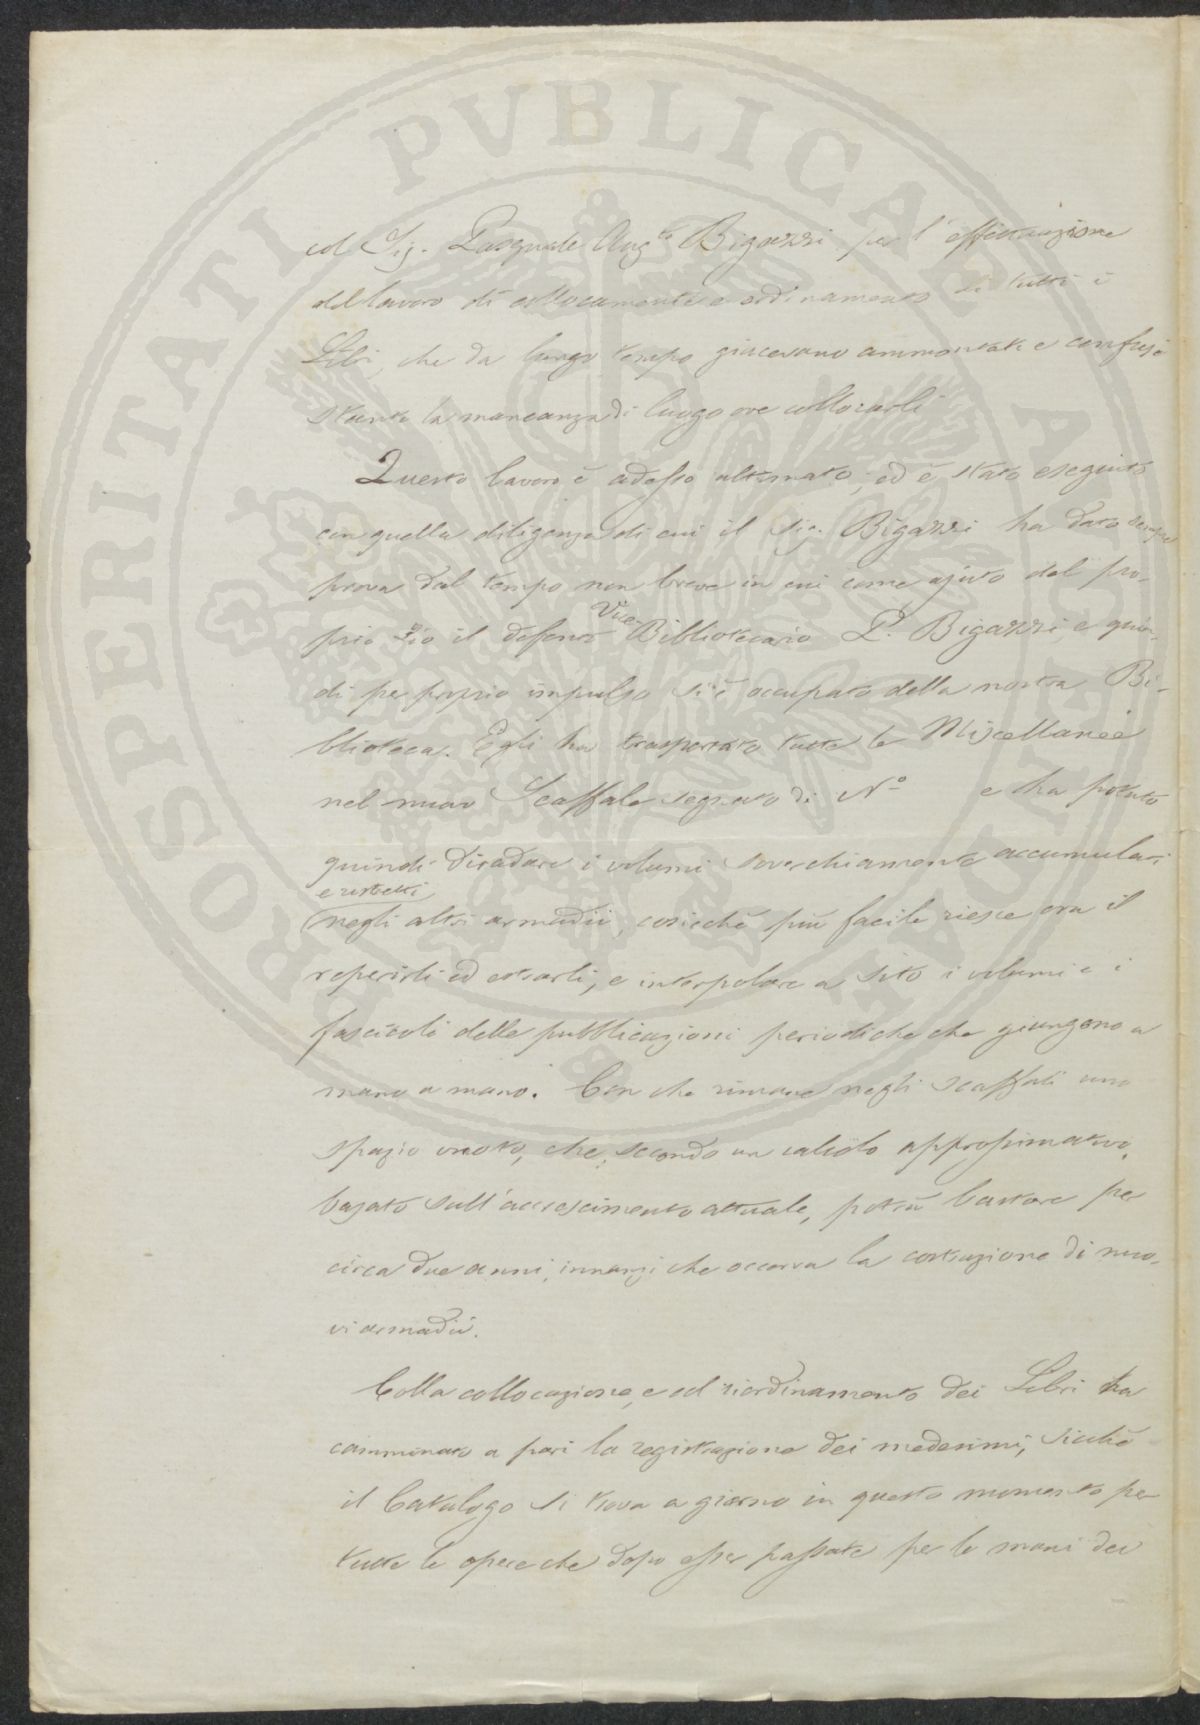 PROSPERITATI PVBLICAE AVGENDAE
col Sig. Pasquale Aug.to Bigazzi per l'effettuazione
del lavoro di collocamento e ordinamento di tutti i
Libri, che da lungo tempo giacevano ammontati e confusi
stante la mancanza di luogo ove collocarli
Questo lavoro è adesso ultimato, ed è stato eseguito
con quella diligenza di cui il Sig. Bigazzi ha dato sempre
prova dal tempo non breve in cui come ajuto del pro-
prio Zio il defunto Vice-Bibliotecario P. Bigazzi, e quin-
di per proprio impulso si è occupato della nostra Bi-
blioteca. Egli ha trasportato tutte le Miscellanee
nel nuovo Scaffale segnato di N.o e ha potuto
quindi diradare i volumi soverchiamente accumulati
e ristretti
negli altri armadii, cosicchè più facile riesce ora il
reperirli ed estrarli, e interpolare a sito i volumi e i
fascicoli delle pubblicazioni periodiche che giungono a
mano a mano. Con che rimane negli scaffali uno
spazio vuoto, che, secondo un calcolo approssimativo,
basato sull'accrescimento attuale, potrà bastare per
circa due anni, innanzi che occorra la costruzione di nuo-
vi armadii.
Colla collocazione, e col riordinamento dei Libri ha
camminato a pari la registrazione dei medesimi, sicchè
il Catalogo si trova a giorno in questo momento per
tutte le opere che dopo esser passate per le mani dei